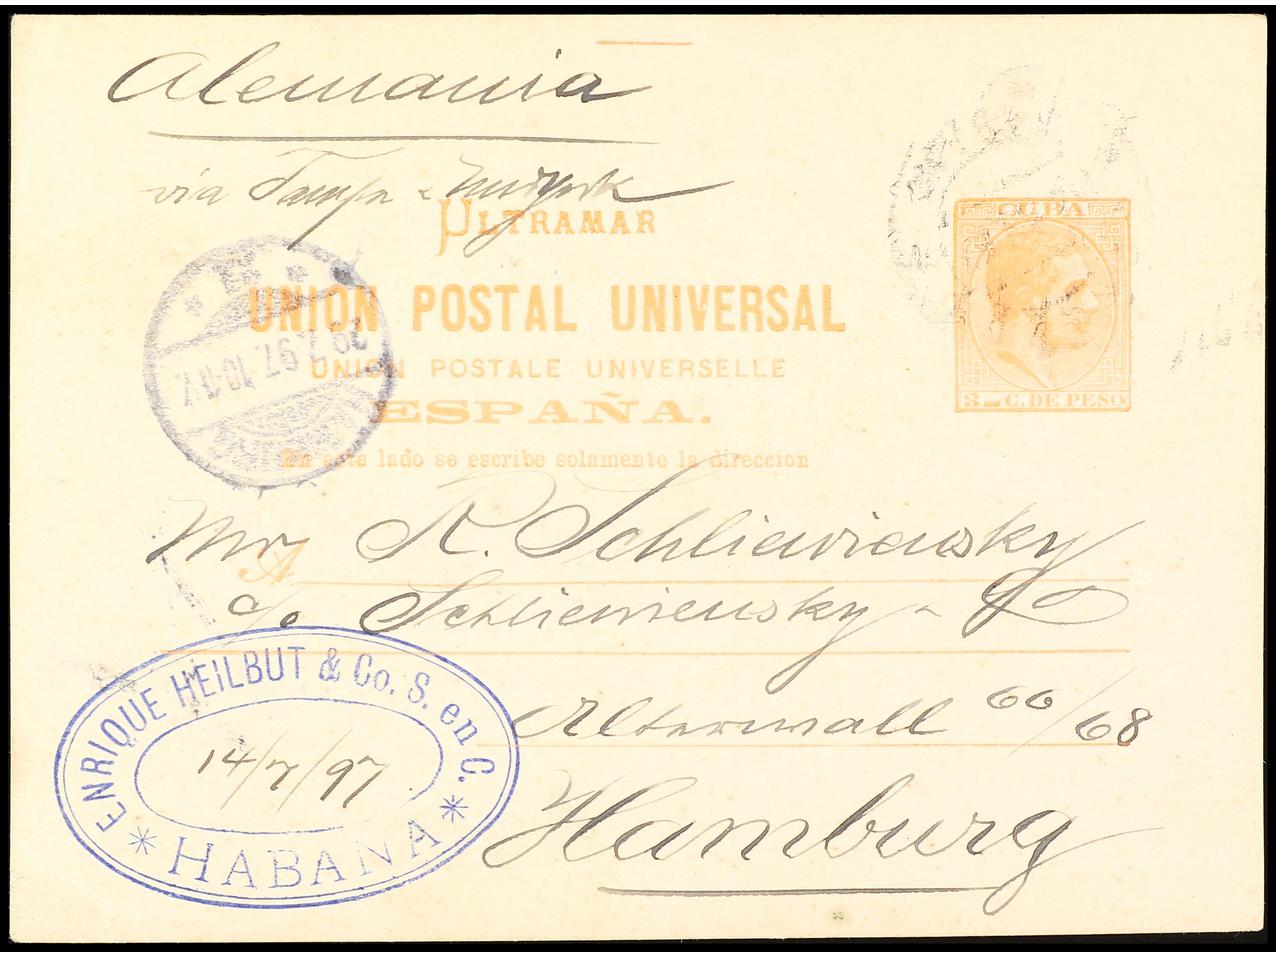 Alemania
via Tampa & Newyork
ULTRAMAR
CUBA
UNION POSTAL UNIVERSAL
UNION POSTALE UNIVERSELLE
ESPAÑA.
3 C. DE PESO
29.7.97. 10-11 V.
En este lado se escribe solamente la direccion
Mr R. Schliewiensky
A
c/o Schliewiensky &
Alterwall 60/68
Hamburg
ENRIQUE HEILBUT & Co. S. en C.
14/7/97
HABANA